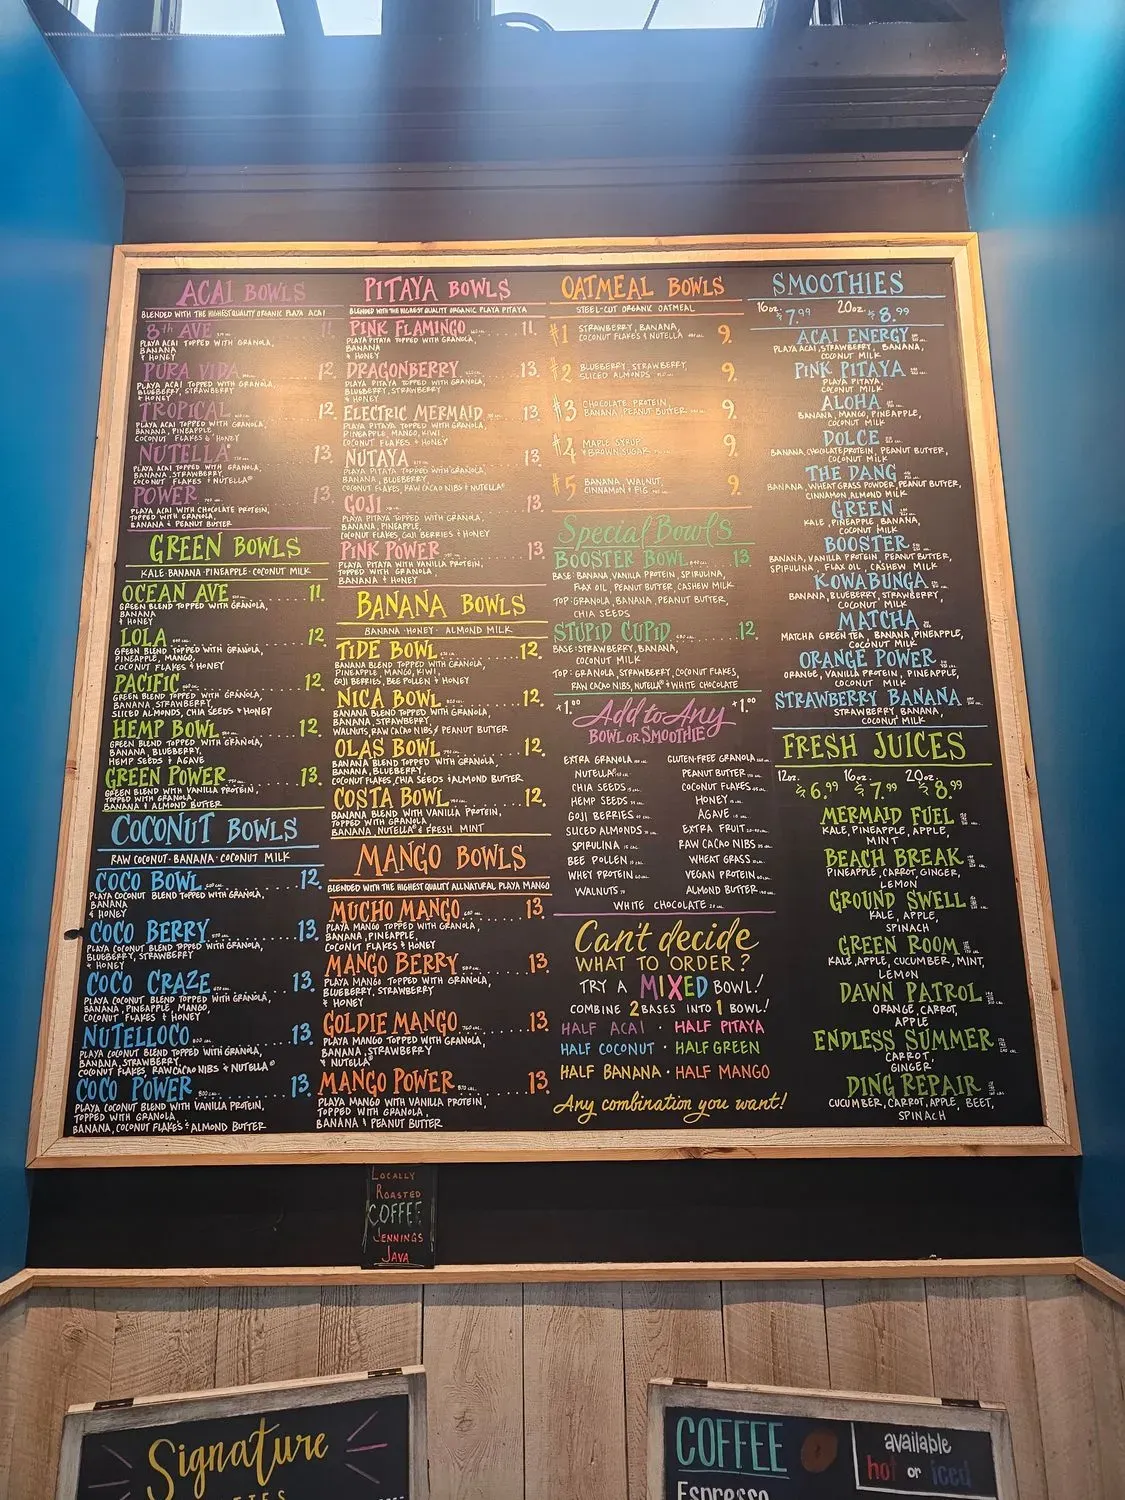 ACAI BOWLS
BLENDED WITH THE HIGHEST QUALITY ORGANIC PLAYA ACAI
8th AVE 11.
PLAYA ACAI TOPPED WITH GRANOLA,
BANANA
& HONEY
PURA VIDA 12.
PLAYA ACAI TOPPED WITH GRANOLA,
BLUEBERRY, STRAWBERRY
& HONEY
TROPICAL 12.
PLAYA ACAI TOPPED WITH GRANOLA,
BANANA, PINEAPPLE,
COCONUT FLAKES & HONEY
NUTELLA® 13.
PLAYA ACAI TOPPED WITH GRANOLA,
BANANA, STRAWBERRY,
COCONUT FLAKES & NUTELLA®
POWER 13.
PLAYA ACAI WITH CHOCOLATE PROTEIN,
TOPPED WITH GRANOLA,
BANANA & PEANUT BUTTER
GREEN BOWLS
KALE · BANANA · PINEAPPLE · COCONUT MILK
OCEAN AVE 11.
GREEN BLEND TOPPED WITH GRANOLA,
BANANA
& HONEY
LOLA 12.
GREEN BLEND TOPPED WITH GRANOLA,
PINEAPPLE, MANGO,
COCONUT FLAKES & HONEY
PACIFIC 12.
GREEN BLEND TOPPED WITH GRANOLA,
BANANA, STRAWBERRY,
SLICED ALMONDS, CHIA SEEDS & HONEY
HEMP BOWL 12.
GREEN BLEND TOPPED WITH GRANOLA,
BANANA, BLUEBERRY,
HEMP SEEDS & AGAVE
GREEN POWER 13.
GREEN BLEND WITH VANILLA PROTEIN,
TOPPED WITH GRANOLA,
BANANA & ALMOND BUTTER
COCONUT BOWLS
RAW COCONUT · BANANA · COCONUT MILK
COCO BOWL 12.
PLAYA COCONUT BLEND TOPPED WITH GRANOLA,
BANANA
& HONEY
COCO BERRY 13.
PLAYA COCONUT BLEND TOPPED WITH GRANOLA,
BLUEBERRY, STRAWBERRY
& HONEY
COCO CRAZE 13.
PLAYA COCONUT BLEND TOPPED WITH GRANOLA,
BANANA, PINEAPPLE, MANGO,
COCONUT FLAKES & HONEY
NUTELLOCO 13.
PLAYA COCONUT BLEND TOPPED WITH GRANOLA,
BANANA, STRAWBERRY,
COCONUT FLAKES, RAW CACAO NIBS & NUTELLA®
COCO POWER 13.
PLAYA COCONUT BLEND WITH VANILLA PROTEIN,
TOPPED WITH GRANOLA,
BANANA, COCONUT FLAKES & ALMOND BUTTER
PITAYA BOWLS
BLENDED WITH THE HIGHEST QUALITY ORGANIC PLAYA PITAYA
PINK FLAMINGO 11.
PLAYA PITAYA TOPPED WITH GRANOLA,
BANANA
& HONEY
DRAGONBERRY 13.
PLAYA PITAYA TOPPED WITH GRANOLA,
BLUEBERRY, STRAWBERRY
& HONEY
ELECTRIC MERMAID 13.
PLAYA PITAYA TOPPED WITH GRANOLA,
PINEAPPLE, MANGO, KIWI,
COCONUT FLAKES & HONEY
NUTAYA 13.
PLAYA PITAYA TOPPED WITH GRANOLA,
BANANA, BLUEBERRY,
COCONUT FLAKES, RAW CACAO NIBS & NUTELLA®
GOJI 13.
PLAYA PITAYA TOPPED WITH GRANOLA,
BANANA, PINEAPPLE,
COCONUT FLAKES, GOJI BERRIES & HONEY
PINK POWER 13.
PLAYA PITAYA WITH VANILLA PROTEIN,
TOPPED WITH GRANOLA,
BANANA & HONEY
BANANA BOWLS
BANANA · HONEY · ALMOND MILK
TIDE BOWL 12.
BANANA BLEND TOPPED WITH GRANOLA,
PINEAPPLE, MANGO, KIWI,
GOJI BERRIES, BEE POLLEN & HONEY
NICA BOWL 12.
BANANA BLEND TOPPED WITH GRANOLA,
BANANA, STRAWBERRY,
WALNUTS, RAW CACAO NIBS & PEANUT BUTTER
OLAS BOWL 12.
BANANA BLEND TOPPED WITH GRANOLA,
BANANA, BLUEBERRY,
COCONUT FLAKES, CHIA SEEDS & ALMOND BUTTER
COSTA BOWL 12.
BANANA BLEND WITH VANILLA PROTEIN,
TOPPED WITH GRANOLA,
BANANA, NUTELLA® & FRESH MINT
MANGO BOWLS
BLENDED WITH THE HIGHEST QUALITY ALL NATURAL PLAYA MANGO
MUCHO MANGO 13.
PLAYA MANGO TOPPED WITH GRANOLA,
BANANA, PINEAPPLE,
COCONUT FLAKES & HONEY
MANGO BERRY 13.
PLAYA MANGO TOPPED WITH GRANOLA,
BLUEBERRY, STRAWBERRY
& HONEY
GOLDIE MANGO 13.
PLAYA MANGO TOPPED WITH GRANOLA,
BANANA, STRAWBERRY
& NUTELLA®
MANGO POWER 13.
PLAYA MANGO WITH VANILLA PROTEIN,
TOPPED WITH GRANOLA,
BANANA & PEANUT BUTTER
OATMEAL BOWLS
STEEL-CUT ORGANIC OATMEAL
#1 STRAWBERRY, BANANA, 9.
COCONUT FLAKES & NUTELLA
#2 BLUEBERRY, STRAWBERRY, 9.
SLICED ALMONDS
#3 CHOCOLATE PROTEIN, 9.
BANANA, PEANUT BUTTER
#4 MAPLE SYRUP 9.
& BROWN SUGAR
#5 BANANA, WALNUT, 9.
CINNAMON & FIG
Special Bowls
BOOSTER BOWL 13.
BASE: BANANA, VANILLA PROTEIN, SPIRULINA,
FLAX OIL, PEANUT BUTTER, CASHEW MILK
TOP: GRANOLA, BANANA, PEANUT BUTTER,
CHIA SEEDS
STUPID CUPID 12.
BASE: STRAWBERRY, BANANA,
COCONUT MILK
TOP: GRANOLA, STRAWBERRY, COCONUT FLAKES,
RAW CACAO NIBS, NUTELLA® & WHITE CHOCOLATE
+1.00 Add to Any +1.00
BOWL OR SMOOTHIE
EXTRA GRANOLA GLUTEN-FREE GRANOLA
NUTELLA® PEANUT BUTTER
CHIA SEEDS COCONUT FLAKES
HEMP SEEDS HONEY
GOJI BERRIES AGAVE
SLICED ALMONDS EXTRA FRUIT
SPIRULINA RAW CACAO NIBS
BEE POLLEN WHEAT GRASS
WHEY PROTEIN VEGAN PROTEIN
WALNUTS ALMOND BUTTER
WHITE CHOCOLATE
Can't decide
WHAT TO ORDER?
TRY A MIXED BOWL!
COMBINE 2 BASES INTO 1 BOWL!
HALF ACAI · HALF PITAYA
HALF COCONUT · HALF GREEN
HALF BANANA · HALF MANGO
Any combination you want!
SMOOTHIES
16oz. 7.99 20oz. 8.99
ACAI ENERGY
PLAYA ACAI, STRAWBERRY, BANANA,
COCONUT MILK
PINK PITAYA
PLAYA PITAYA,
COCONUT MILK
ALOHA
BANANA, MANGO, PINEAPPLE,
COCONUT MILK
DOLCE
BANANA, CHOCOLATE PROTEIN, PEANUT BUTTER,
COCONUT MILK
THE DANG
BANANA, WHEAT GRASS POWDER, PEANUT BUTTER,
CINNAMON, ALMOND MILK
GREEN
KALE, PINEAPPLE, BANANA,
COCONUT MILK
BOOSTER
BANANA, VANILLA PROTEIN, PEANUT BUTTER,
SPIRULINA, FLAX OIL, CASHEW MILK
KOWABUNGA
BANANA, BLUEBERRY, STRAWBERRY,
COCONUT MILK
MATCHA
MATCHA GREEN TEA, BANANA, PINEAPPLE,
COCONUT MILK
ORANGE POWER
ORANGE, VANILLA PROTEIN, PINEAPPLE,
COCONUT MILK
STRAWBERRY BANANA
STRAWBERRY, BANANA,
COCONUT MILK
FRESH JUICES
12oz. 6.99 16oz. 7.99 20oz. 8.99
MERMAID FUEL
KALE, PINEAPPLE, APPLE,
MINT
BEACH BREAK
PINEAPPLE, CARROT, GINGER,
LEMON
GROUND SWELL
KALE, APPLE,
SPINACH
GREEN ROOM
KALE, APPLE, CUCUMBER, MINT,
LEMON
DAWN PATROL
ORANGE, CARROT,
APPLE
ENDLESS SUMMER
CARROT,
GINGER
DING REPAIR
CUCUMBER, CARROT, APPLE, BEET,
SPINACH
LOCALLY
ROASTED
COFFEE
JENNINGS
JAVA
Signature
COFFEE
available
hot or iced
Espresso